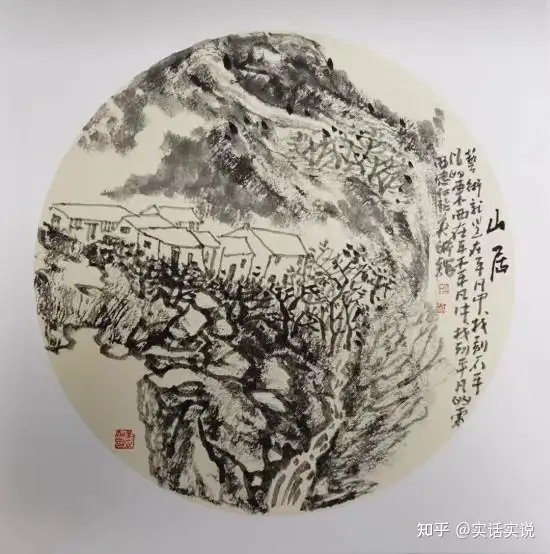 山居
藝術就是在平凡中找到不平
凡的東西在不平凡中找到平凡的東
西
知乎 @实话实说